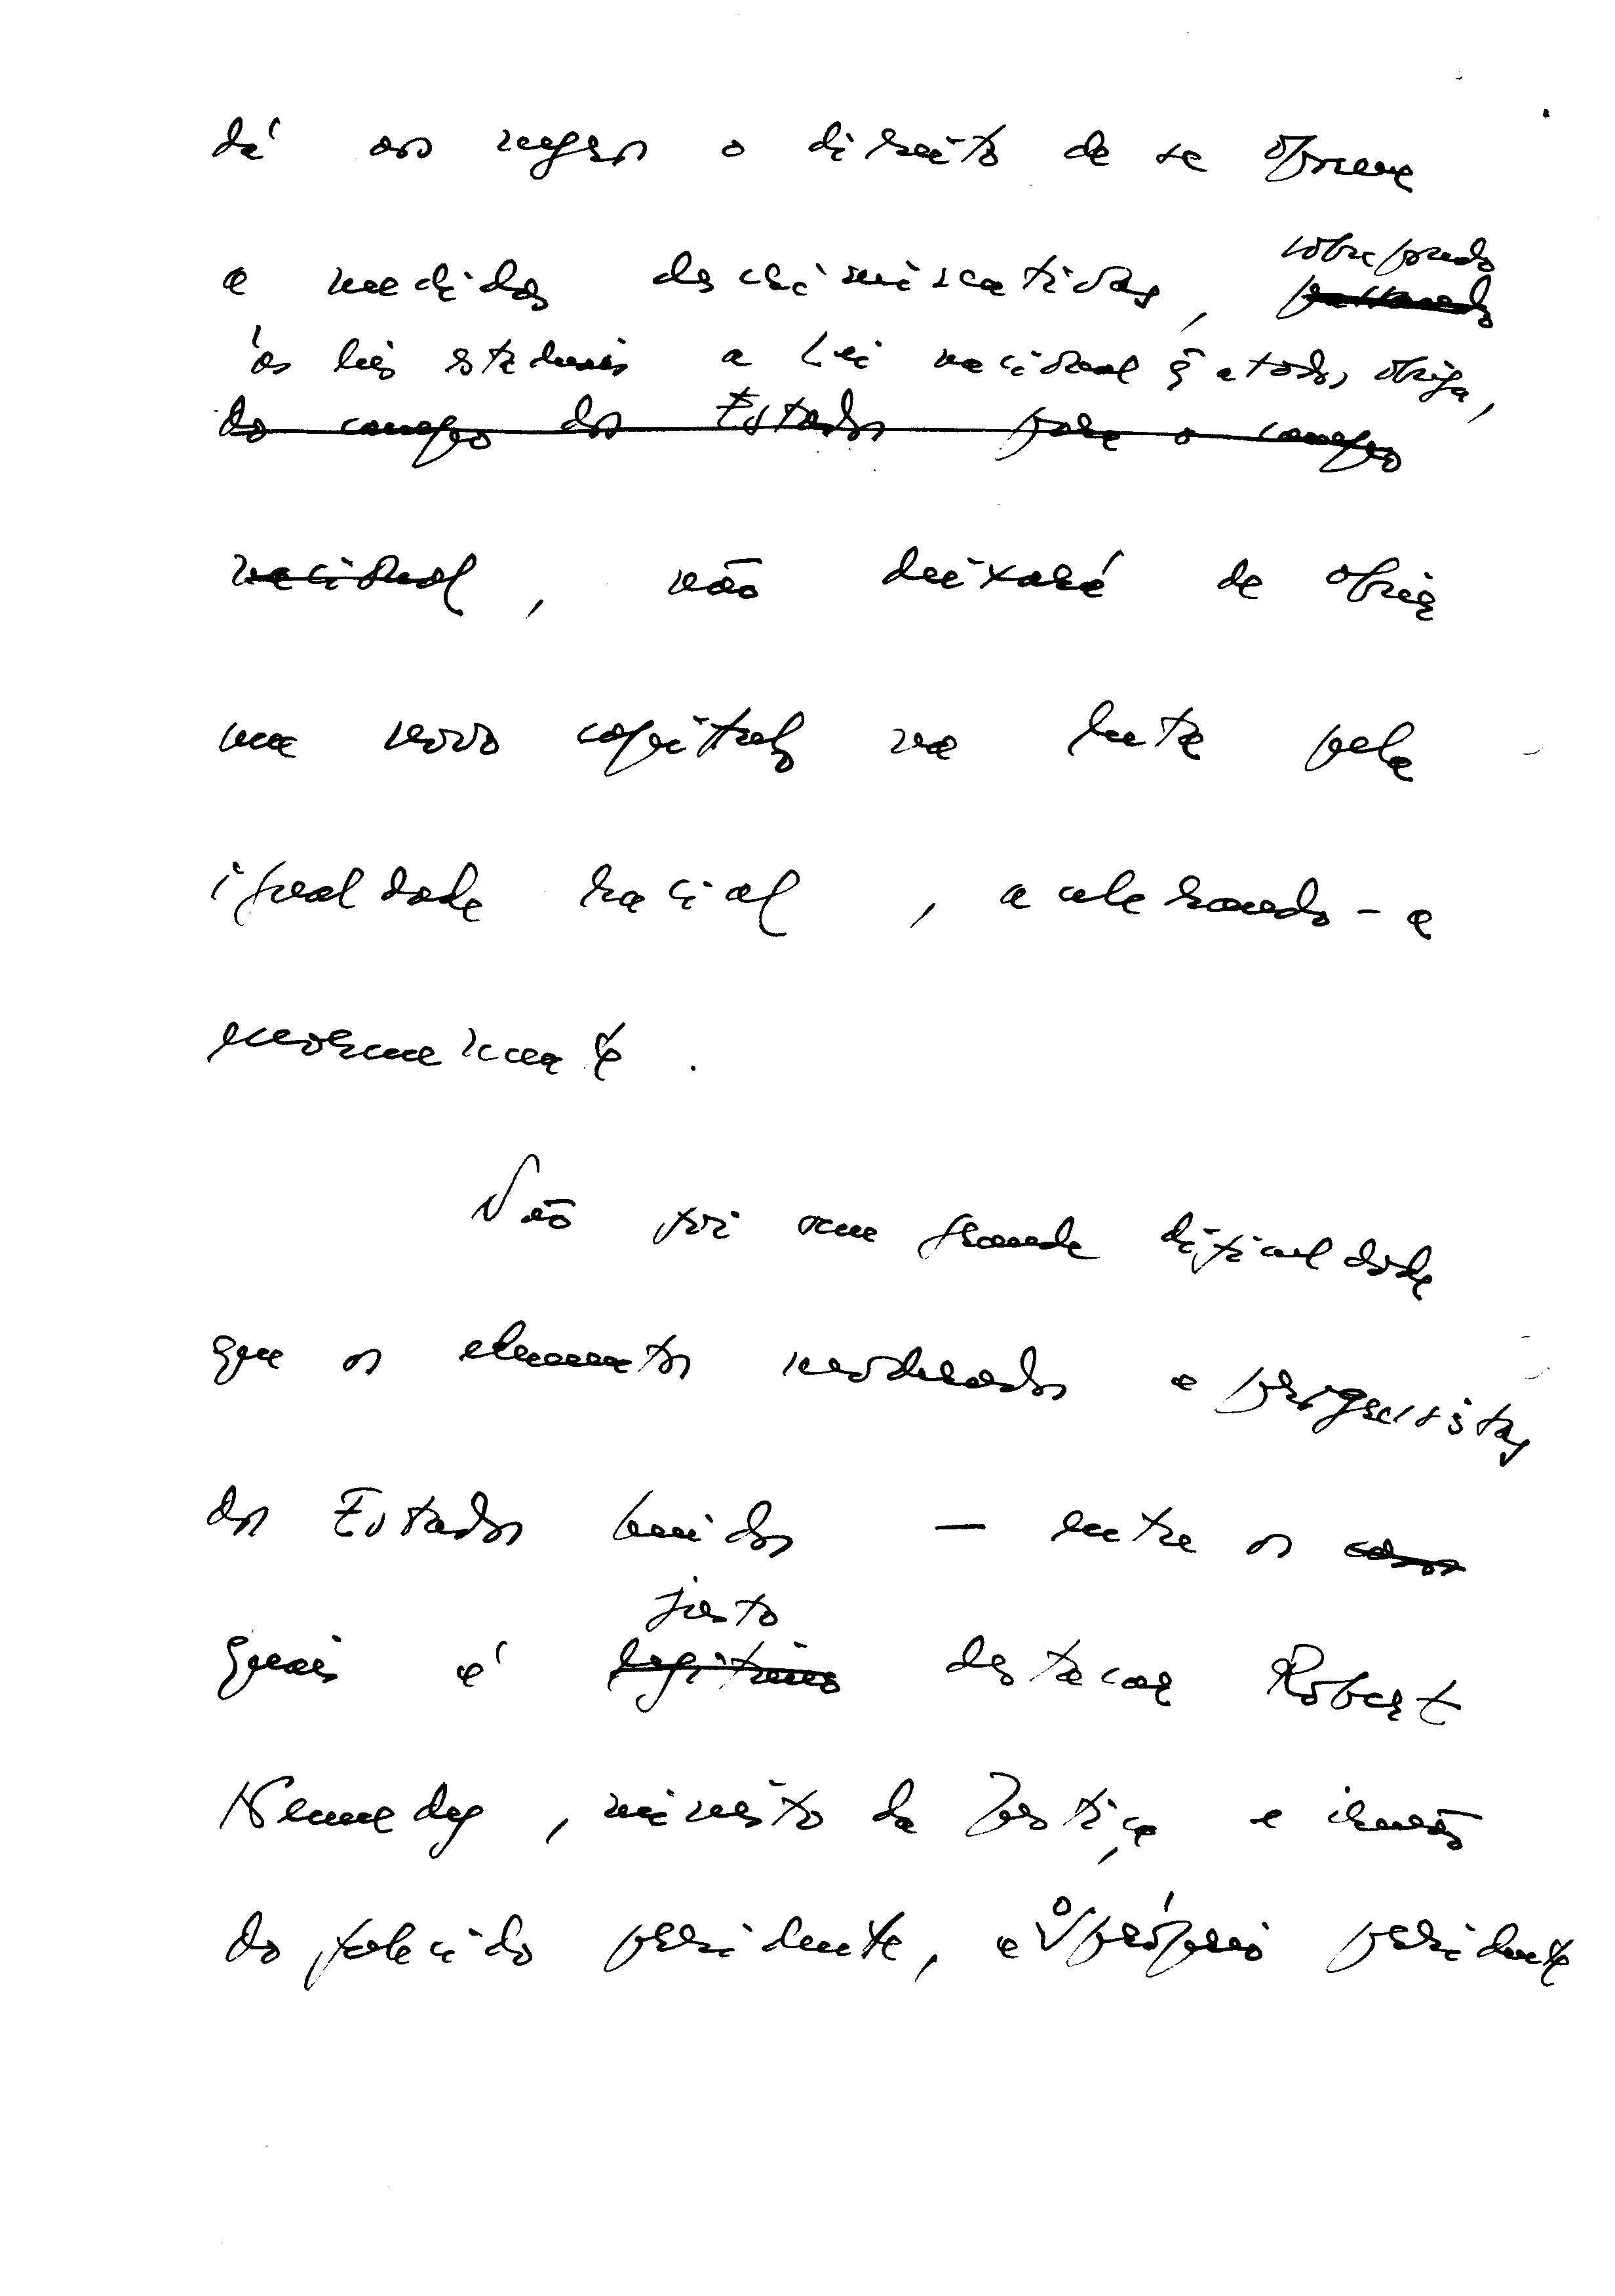 dá aos negros o direito de se oporem
a medidas descriminicativas, sobrepondo
passando
às leis estaduais a Lei nacional q̃ a todos obriga,
do campo dos Estados para o campo
nacional, não deixará de abrir
um novo capítulo na luta pela
igualdade racial, acelerando-a
enormemente.
Não foi sem grande dificuldade
que os elementos moderados e progressistas
dos Estados Unidos — entre os
justo
quais é legítimo destacar Robert
Kennedy, ministro da Justiça e irmão
do falecido presidente, e o próprio presidente